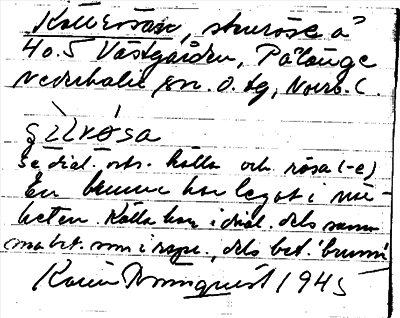 Källrösan, stenröse å
4o.5 Västgården, Pålänge
Nederkalix sn. o. tg, Norrb. l.
gǽllrøsa
Se dial. ordb. källa och rösa (-e)
En brunn har legat i när-
heten. Källa har i dial. dels samma
bet. som i rspr., dels bet. 'brunn'
Karin Bronnquist 1945